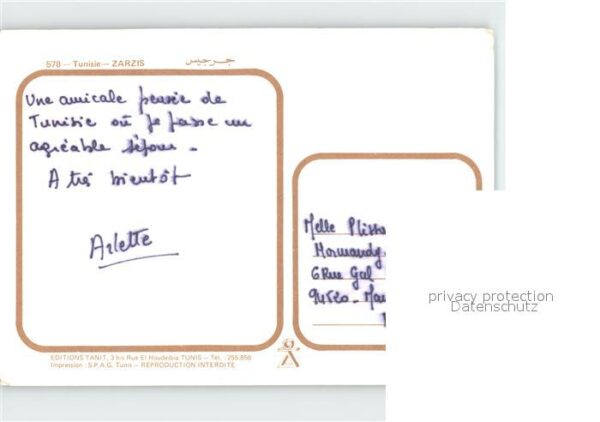 578 — Tunisie — ZARZIS جرجيس
Une amicale pensée de
Tunisie où je passe un
agréable séjour.
A très bientôt
Arlette
Melle
Normandy
6 Rue Gal
94520 - Man
privacy protection
Datenschutz
EDITIONS TANIT, 3 bis Rue El Houdeibia TUNIS — Tél. : 255.856
Impression : S.P.A.G. Tunis — REPRODUCTION INTERDITE